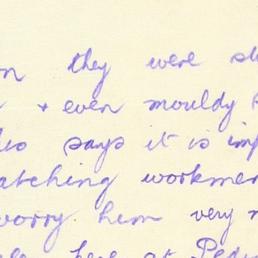 they were
+ even mouldy
says it is imp
atching workmen
worry him very
here at Pedr